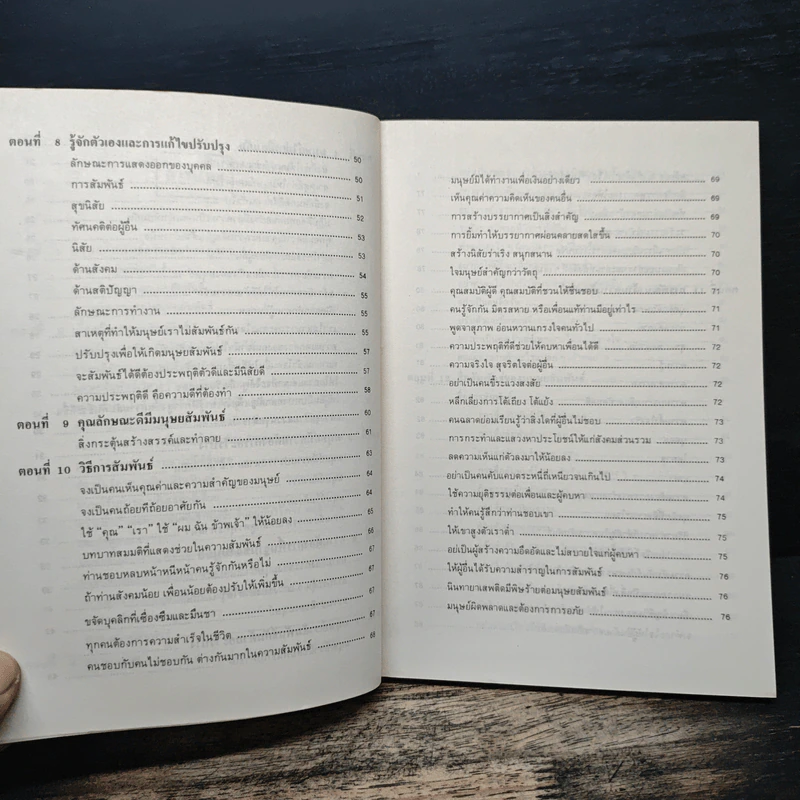 ตอนที่ 8 รู้จักตัวเองและการแก้ไขปรับปรุง 50
ลักษณะการแสดงออกของบุคคล 50
การสัมพันธ์ 51
สุขนิสัย 52
ทัศนคติต่อผู้อื่น 53
นิสัย 53
ด้านสังคม 54
ด้านสติปัญญา 55
ลักษณะการทำงาน 55
สาเหตุที่ทำให้มนุษย์เราไม่สัมพันธ์กัน 57
ปรับปรุงเพื่อให้เกิดมนุษยสัมพันธ์ 57
จะสัมพันธ์ได้ดีต้องประพฤติตัวดีและมีนิสัยดี 58
ความประพฤติดี คือความดีที่ต้องทำ 60
ตอนที่ 9 คุณลักษณะดีมีมนุษยสัมพันธ์ 61
สิ่งกระตุ้นสร้างสรรค์และทำลาย 63
ตอนที่ 10 วิธีการสัมพันธ์ 64
จงเป็นคนเห็นคุณค่าและความสำคัญของมนุษย์ 65
จงเป็นคนถ้อยทีถ้อยอาศัยกัน 65
ใช้ “คุณ” “เรา” ใช้ “ผม ฉัน ข้าพเจ้า” ให้น้อยลง 66
บทบาทสมมติที่แสดงช่วยในความสัมพันธ์ 67
ท่านชอบหลบหน้าหนีหน้าคนรู้จักกันหรือไม่ 67
ถ้าท่านสังคมน้อย เพื่อนน้อยต้องปรับให้เพิ่มขึ้น 67
ขจัดบุคลิกที่เซื่องซึมและมึนชา 67
ทุกคนต้องการความสำเร็จในชีวิต 68
คนชอบกับคนไม่ชอบกัน ต่างกันมากในความสัมพันธ์
มนุษย์มิได้ทำงานเพื่อเงินอย่างเดียว 69
เห็นคุณค่าความคิดเห็นของคนอื่น 69
การสร้างบรรยากาศเป็นสิ่งสำคัญ 69
การยิ้มทำให้บรรยากาศผ่อนคลายสดใสขึ้น 70
สร้างนิสัยร่าเริง สนุกสนาน 70
ใจมนุษย์สำคัญกว่าวัตถุ 70
คุณสมบัติผู้ดี คุณสมบัติที่ชวนให้ชื่นชอบ 71
คนรู้จักกัน มิตรสหาย หรือเพื่อนแท้ท่านมีอยู่เท่าไร 71
พูดจาสุภาพ อ่อนหวานเกรงใจคนทั่วไป 71
ความประพฤติที่ดีช่วยให้คบหาเพื่อนได้ดี 72
ความจริงใจ สุจริตใจต่อผู้อื่น 72
อย่าเป็นคนขี้ระแวงสงสัย 72
หลีกเลี่ยงการโต้เถียง โต้แย้ง 72
คนฉลาดย่อมเรียนรู้ว่าสิ่งใดที่ผู้อื่นไม่ชอบ 73
การกระทำและแสวงหาประโยชน์ให้แก่สังคมส่วนรวม 73
ลดความเห็นแก่ตัวลงมาให้น้อยลง 73
อย่าเป็นคนคับแคบตระหนี่ถี่เหนียวจนเกินไป 74
ใช้ความยุติธรรมต่อเพื่อนและผู้คบหา 74
ทำให้คนรู้สึกว่าท่านชอบเขา 75
ให้เขาสูงตัวเราต่ำ 75
อย่เป็นผู้สร้างความอึดอัดและไม่สบายใจแก่ผู้คบหา 75
ให้ผู้อื่นได้รับความสำราญในการสัมพันธ์ 76
นินทายาเสพติดมีพิษร้ายต่อมนุษยสัมพันธ์ 76
มนุษย์ผิดพลาดและต้องการการอภัย 76